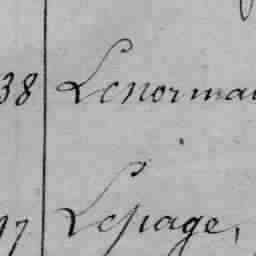 38 Lenorma
97 Lepage,